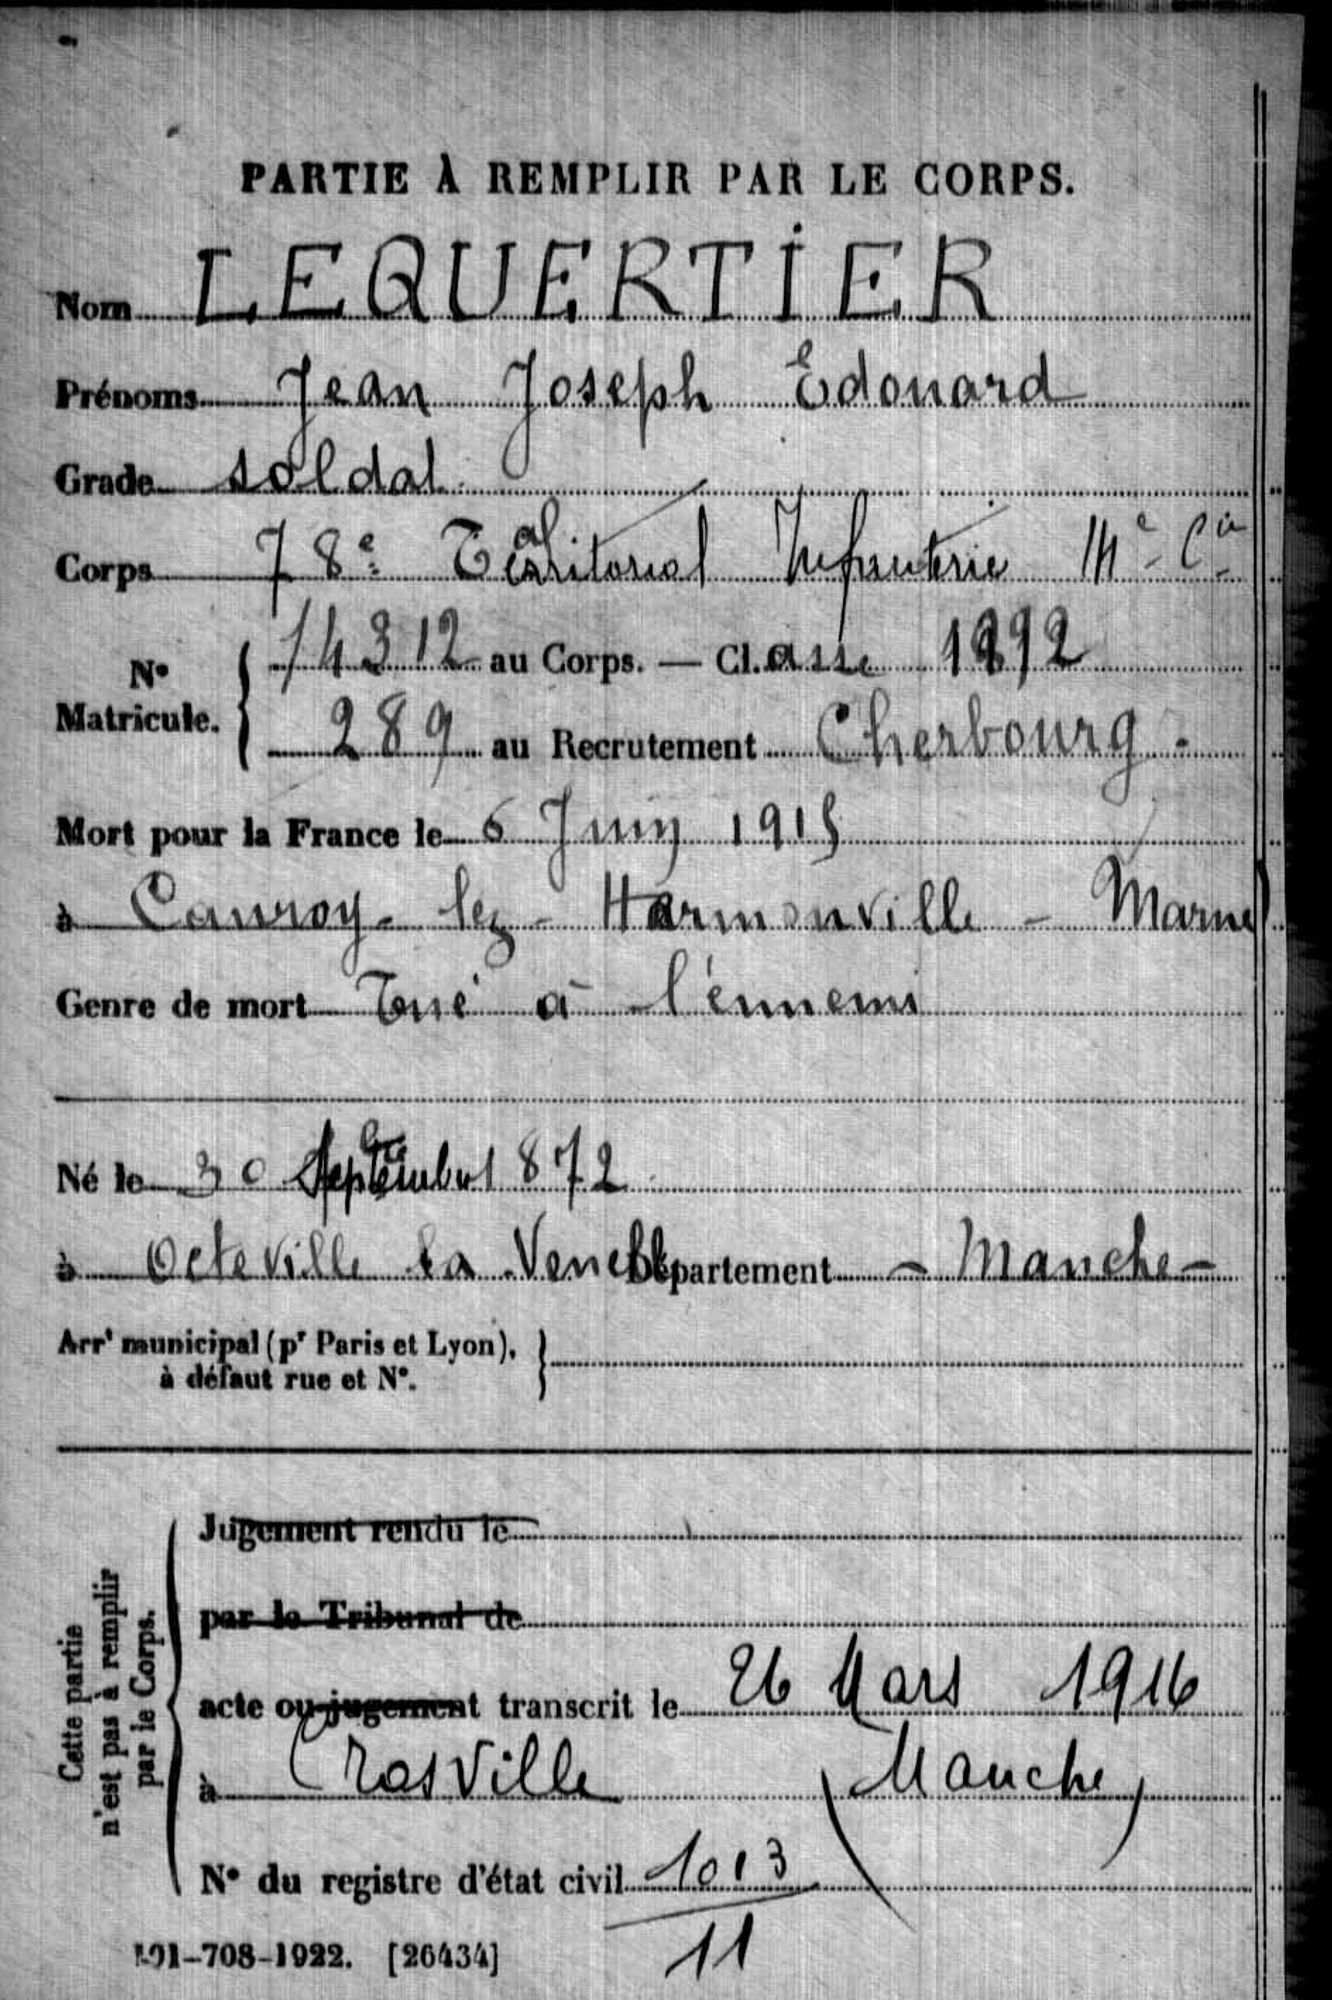 PARTIE À REMPLIR PAR LE CORPS.
Nom LEQUERTIER
Prénoms Jean Joseph Edouard
Grade soldat
Corps 78e Territorial Infanterie Cie
No Matricule. 14312 au Corps. — Cl.asse 1892
289 au Recrutement Cherbourg.
Mort pour la France le 6 Juin 1915
à Cauroy-lez-Hermonville - Marne
Genre de mort Tué à l'ennemi
Né le 30 Septembre 1872
à Octeville la Venelle Département - Manche -
Arrt municipal (pr Paris et Lyon),
à défaut rue et No.
Cette partie
n'est pas à remplir
par le Corps.
Jugement rendu le
par le Tribunal de
acte ou jugement transcrit le 26 Mars 1916
à Crasville (Manche)
No du registre d'état civil 1013
11
-708-1922. [26434]